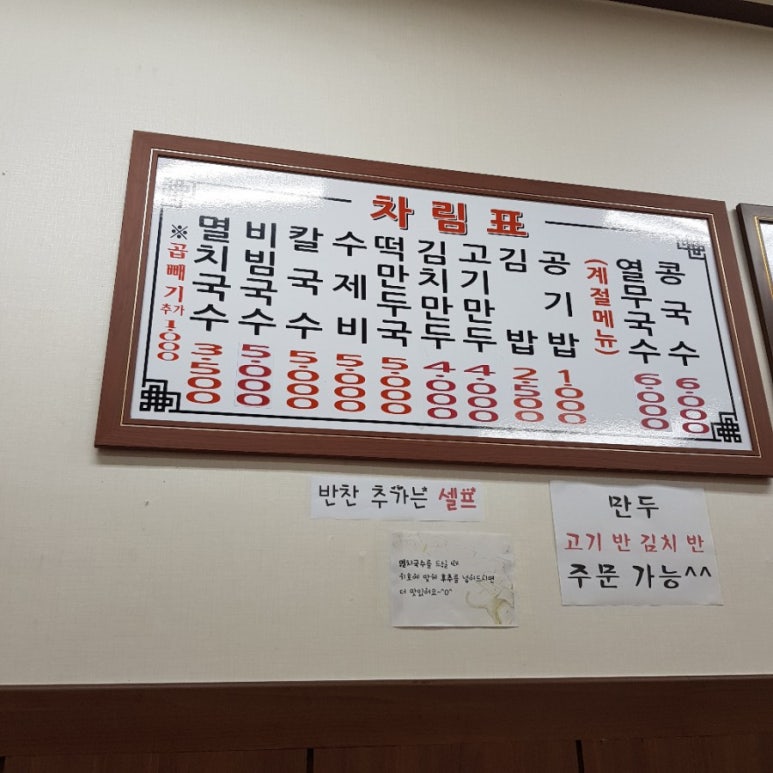 차림표
※곱빼기추가 1.000
멸치국수 3.500
비빔국수 5.000
칼국수 5.000
수제비 5.000
떡만두국 5.000
김치만두 4.000
고기만두 4.000
김밥 2.500
공기밥 1.000
(계절메뉴)
열무국수 6.000
콩국수 6.000
반찬 추가는 셀프
만두
고기 반 김치 반
주문 가능^^
멸치국수를 드실 때
기호에 맞게 후추를 넣어드시면
더 맛있어요~^0^